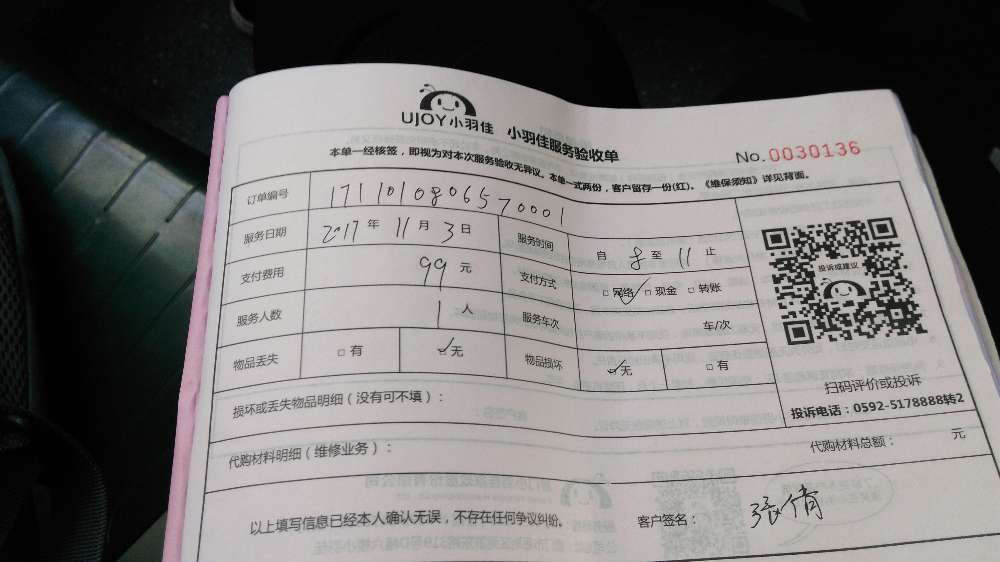 UJOY小羽佳 小羽佳服务验收单
No.0030136
本单一经核签，即视为对本次服务验收无异议。本单一式两份，客户留存一份(红)。《维保须知》详见背面。
订单编号 1711010806570001
服务日期 2017年11月3日 服务时间 自8至11止
支付费用 99元 支付方式 □网络 □现金 □转账
服务人数 1人 服务车次 车/次
物品丢失 □有 □无 物品损坏 □无 □有
投诉或建议
扫码评价或投诉
投诉电话：0592-5178888转2
损坏或丢失物品明细（没有可不填）：
代购材料明细（维修业务）： 代购材料总额： 元
以上填写信息已经本人确认无误，不存在任何争议纠纷。 客户签名： 张倩